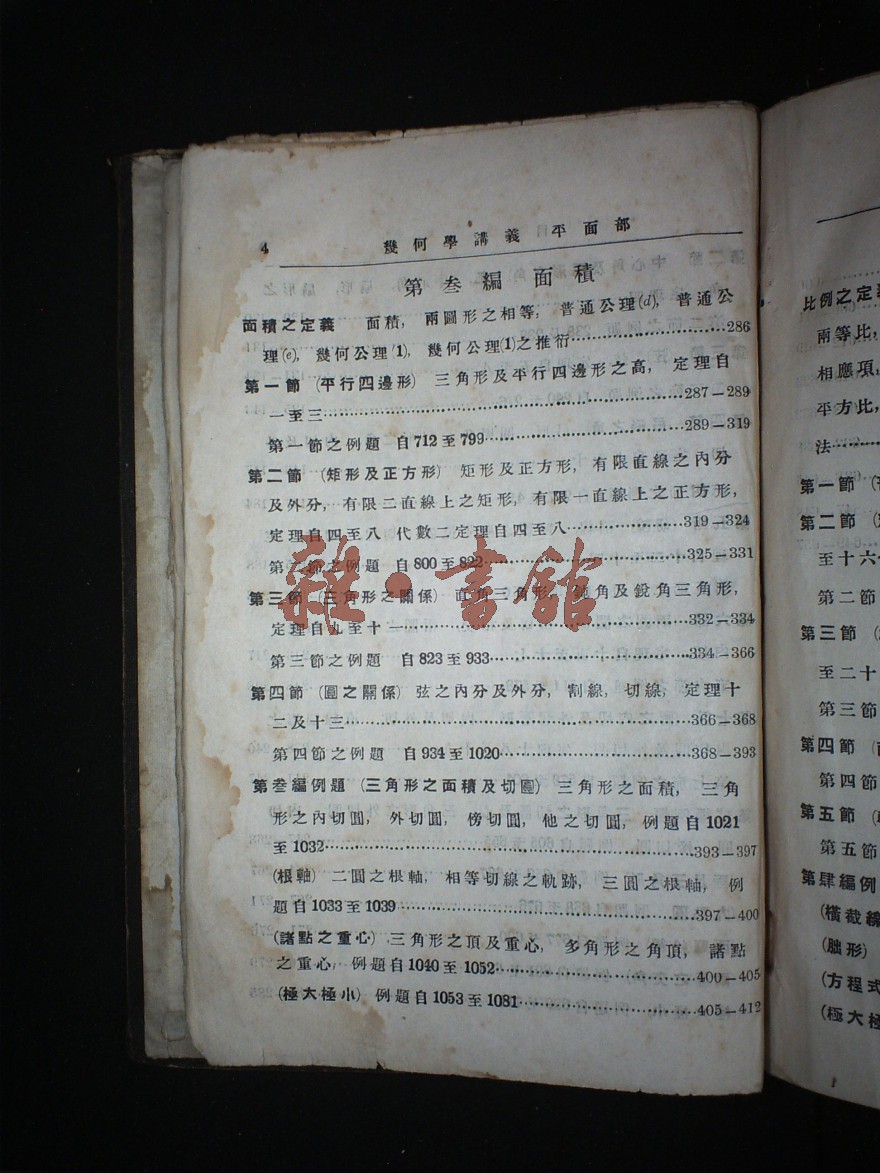 4 幾何學講義 平面部
第叁編 面積
面積之定義 面積, 兩圖形之相等, 普通公理(d), 普通公
理(e), 幾何公理(1), 幾何公理(1)之推衍……286
第一節 (平行四邊形) 三角形及平行四邊形之高, 定理自
一至三……287—289
第一節之例題 自712至799……289—319
第二節 (矩形及正方形) 矩形及正方形, 有限直線之內分
及外分, 有限二直線上之矩形, 有限一直線上之正方形,
定理自四至八 代數二定理自四至八……319—324
第二節之例題 自800至822……325—331
第三節 (三角形之關係) 直角三角形, 鈍角及銳角三角形,
定理自九至十一……332—334
第三節之例題 自823至933……334—366
第四節 (圓之關係) 弦之內分及外分, 割線, 切線, 定理十
二及十三……366—368
第四節之例題 自934至1020……368—393
第叁編例題 (三角形之面積及切圓) 三角形之面積, 三角
形之內切圓, 外切圓, 傍切圓, 他之切圓, 例題自1021
至1032……393—397
(根軸) 二圓之根軸, 相等切線之軌跡, 三圓之根軸, 例
題自1033至1039……397—400
(諸點之重心) 三角形之頂及重心, 多角形之角頂, 諸點
之重心, 例題自1040至1052……400—405
(極大極小) 例題自1053至1081……405—412
雜·書館
比例之定義
兩等比,
相應項,
平方比,
法……
第一節
第二節
至十六
第二節
第三節
至二十
第三節
第四節
第四節
第五節
第五節
第肆編例
(橫截線
(朏形)
(方程式
(極大極